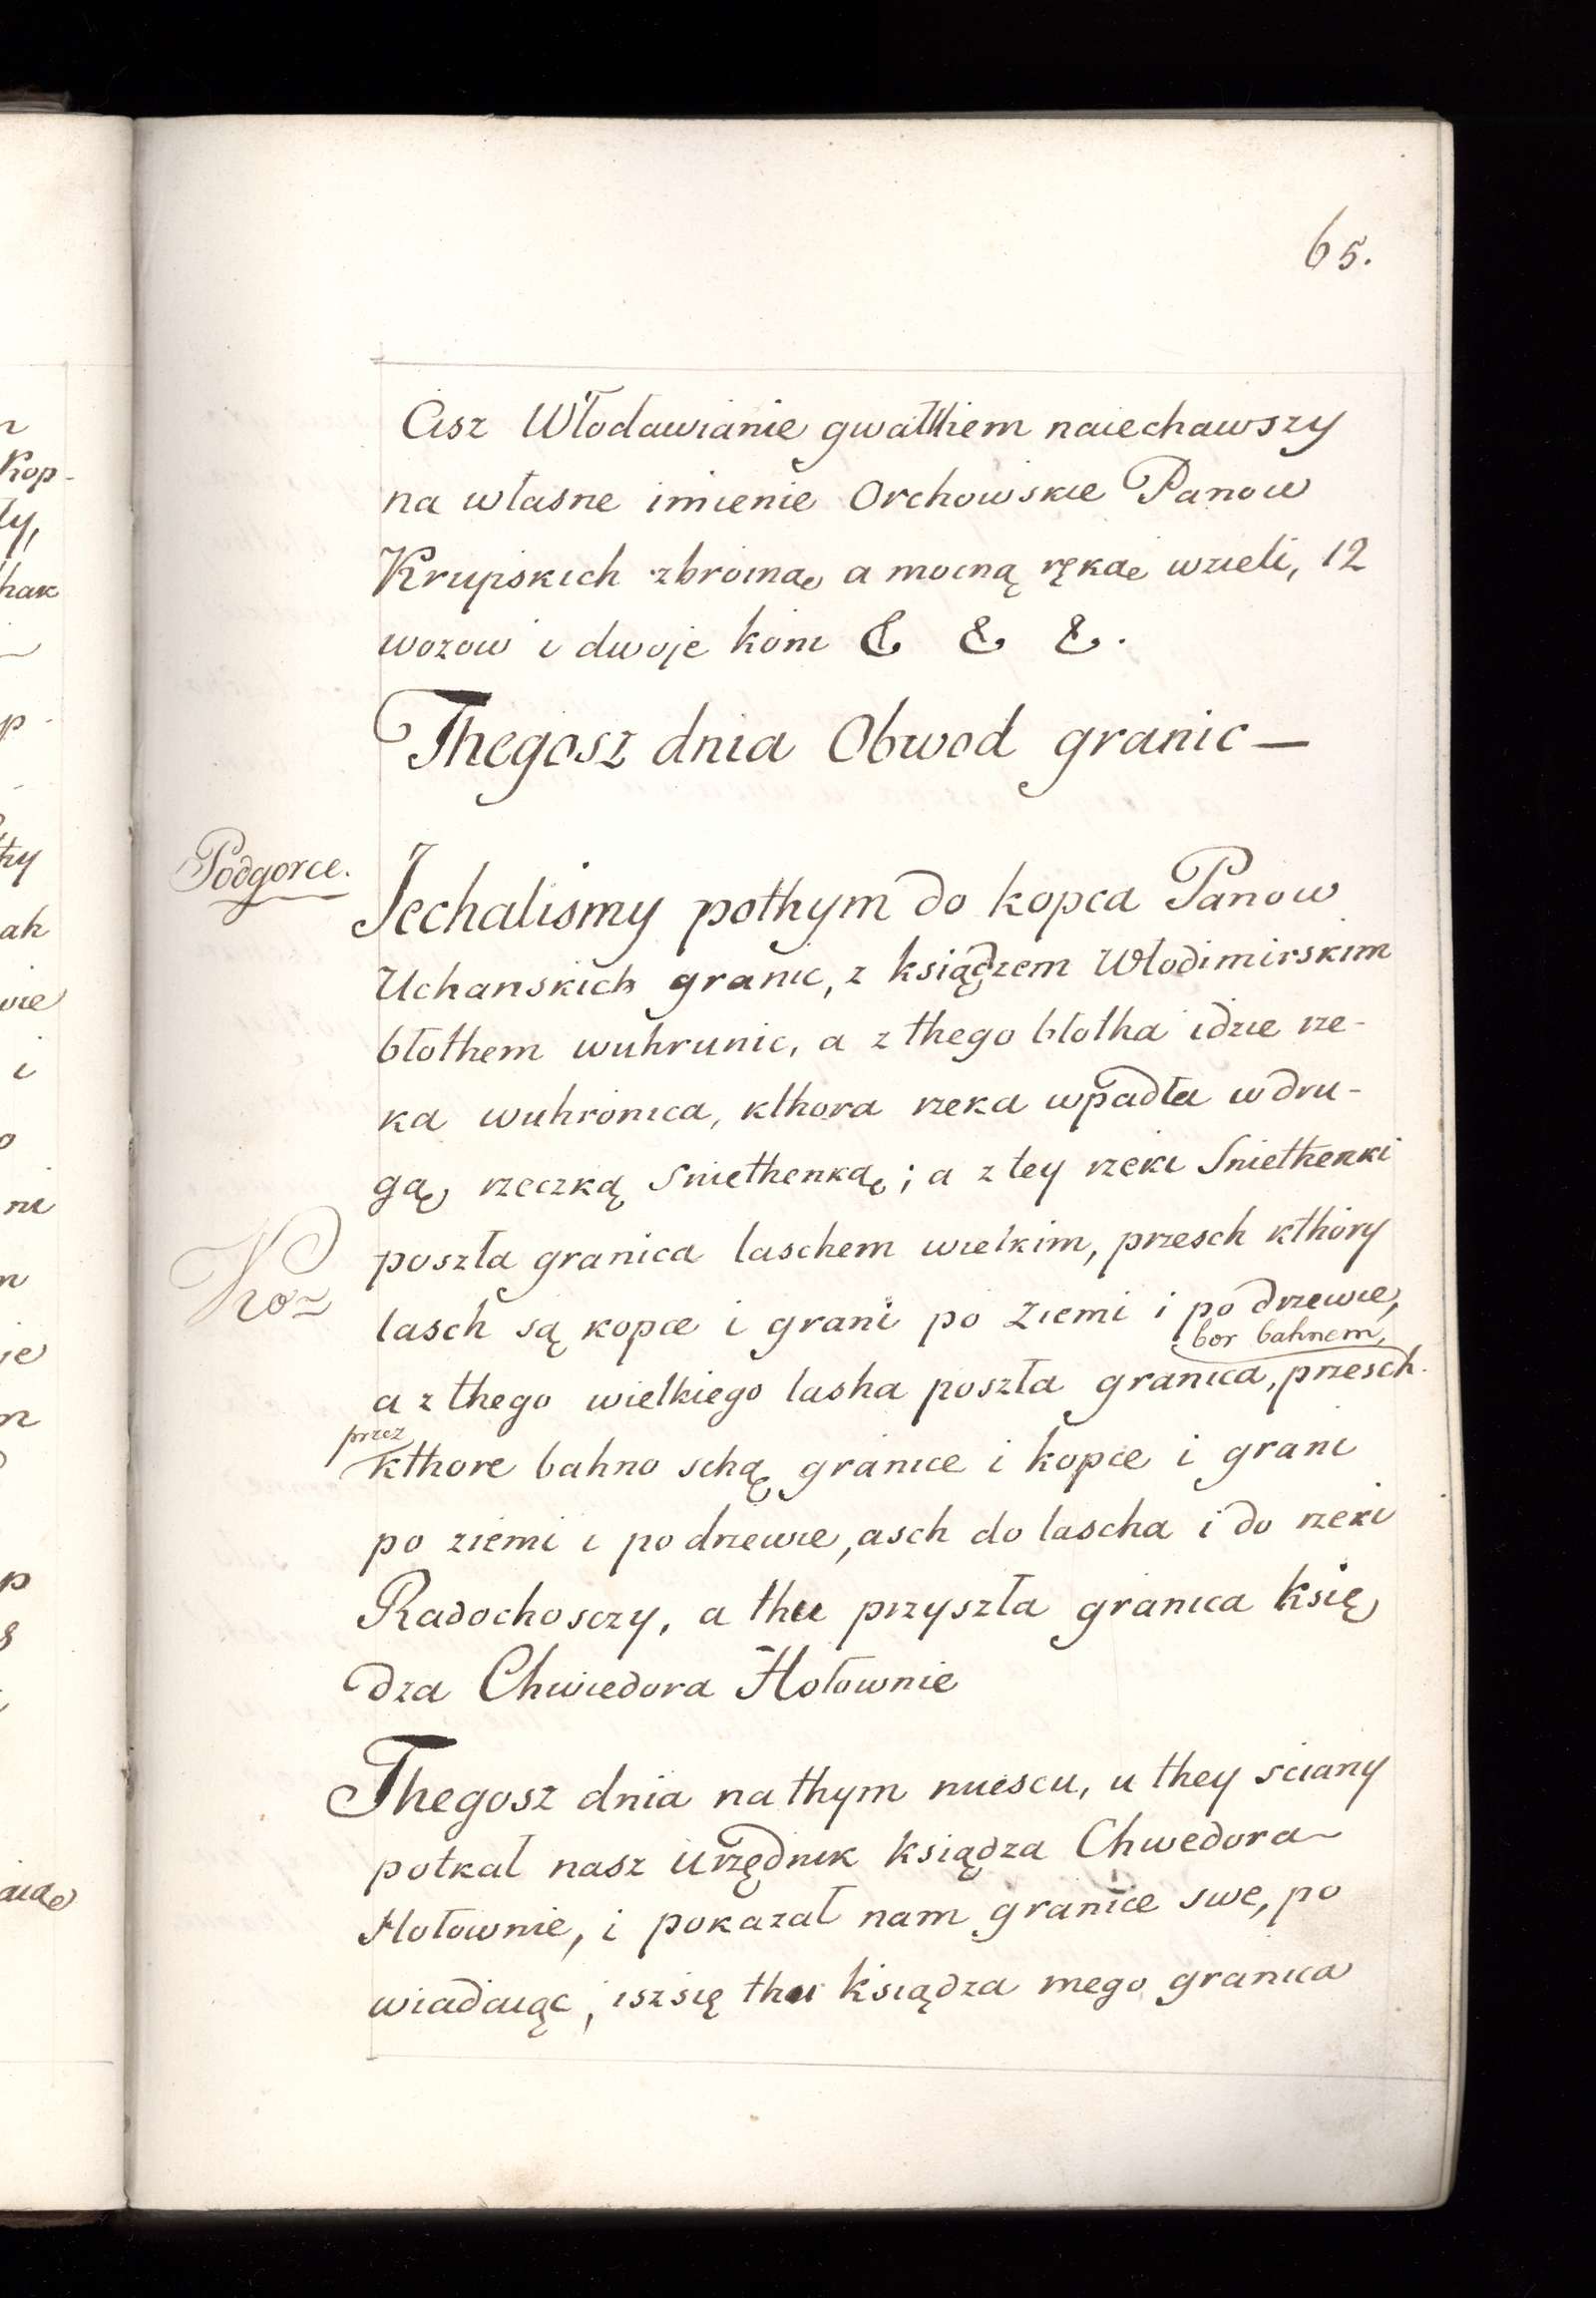 65.
Cisz Włodawianie gwałthem naiechawszy
na własne imienie Orchowskie Panow
Krupskich zbroiną a mocną ręką wzieli, 12
wozow i dwoje koni & & &.
Thegosz dnia Obwod granic —
Podgorce.
Jechalismy pothym do kopca Panow
Uchanskich granic, z księdzem Włodimirskim
błothem wuhrunic, a z thego błotha idzie rze-
ka wuhronica, kthora rzeka wpadła w dru-
gą rzeczką Sniethenką; a z tey rzeki Sniethenki
poszła granica laschem wielkim, przesch kthory
lasch są kopce i grani po ziemi i po drzewie,
bor bahnem,
a z thego wielkiego lasha poszła granica, przesch
przez
kthore bahno schą granice i kopce i grani
po ziemi i po drzewie, asch do lascha i do rzeki
Radochosczy, a thu przyszła granica Księ
dza Chwiedora Hołownie
Thegosz dnia na thym miescu, u they sciany
potkał nasz urzędnik książdza Chwedora
Hołownie, i pokazał nam granice swe, po
wiadaiąc, isz się thu książdza mego granica